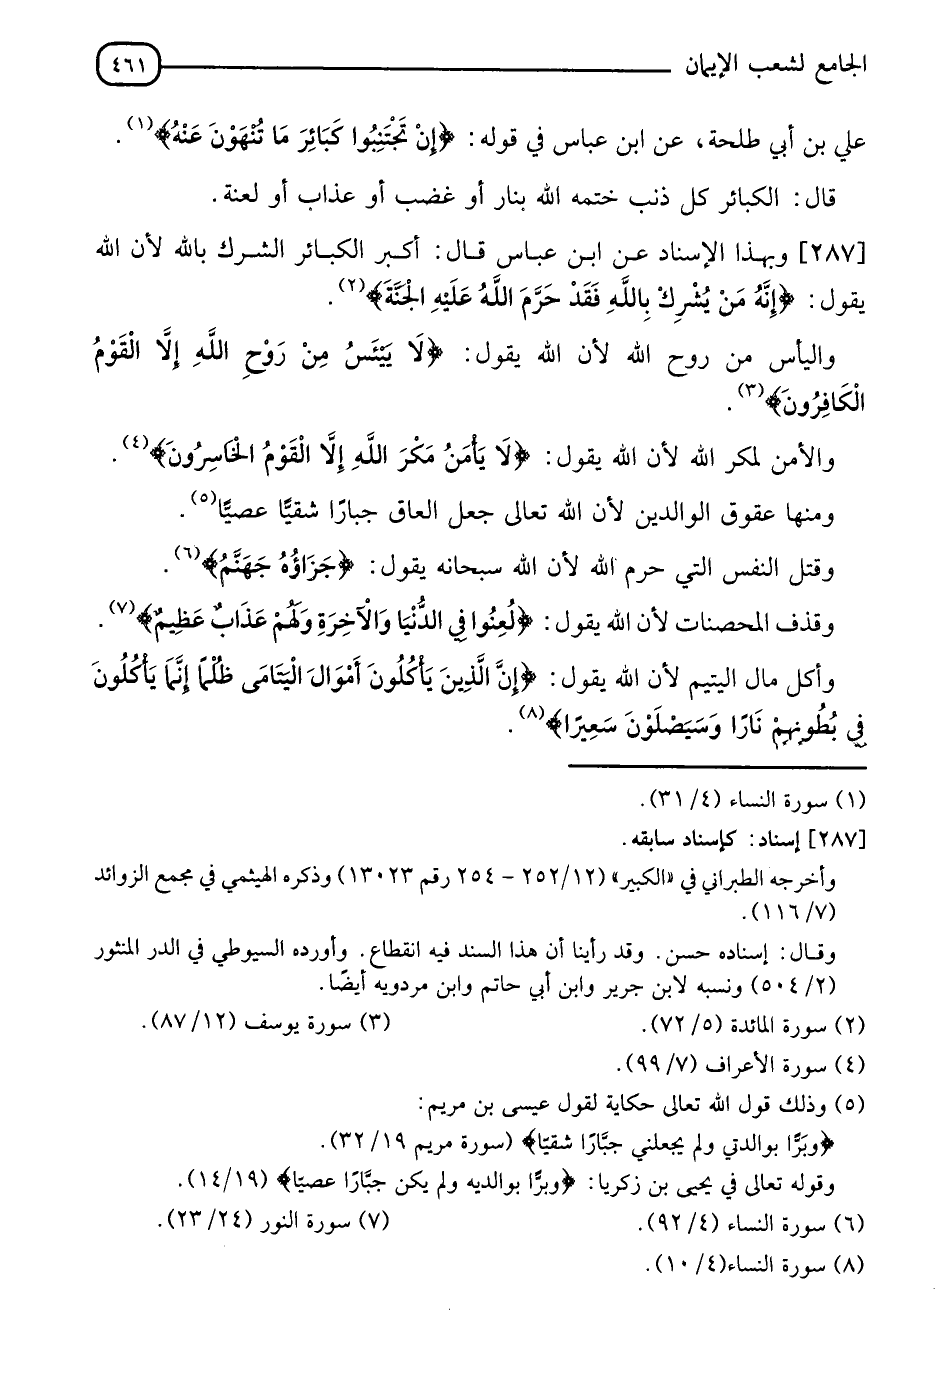 الجامع لشعب الإيمان ٤٦١
علي بن أبي طلحة، عن ابن عباس في قوله: ﴿إِنْ تَجْتَنِبُوا كَبَائِرَ مَا تُنْهَوْنَ عَنْهُ﴾(١).
قال: الكبائر كل ذنب ختمه الله بنار أو غضب أو عذاب أو لعنة.
[٢٨٧] وبهذا الإسناد عن ابن عباس قال: أكبر الكبائر الشرك بالله لأن الله
يقول: ﴿إِنَّهُ مَنْ يُشْرِكْ بِاللَّهِ فَقَدْ حَرَّمَ اللَّهُ عَلَيْهِ الْجَنَّةَ﴾(٢).
واليأس من روح الله لأن الله يقول: ﴿لَا يَيْئَسُ مِنْ رَوْحِ اللَّهِ إِلَّا الْقَوْمُ
الْكَافِرُونَ﴾(٣).
والأمن لمكر الله لأن الله يقول: ﴿لَا يَأْمَنُ مَكْرَ اللَّهِ إِلَّا الْقَوْمُ الْخَاسِرُونَ﴾(٤).
ومنها عقوق الوالدين لأن الله تعالى جعل العاق جبارًا شقيًّا عصيًّا(٥).
وقتل النفس التي حرم الله لأن الله سبحانه يقول: ﴿جَزَاؤُهُ جَهَنَّمُ﴾(٦).
وقذف المحصنات لأن الله يقول: ﴿لُعِنُوا فِي الدُّنْيَا وَالْآخِرَةِ وَلَهُمْ عَذَابٌ عَظِيمٌ﴾(٧).
وأكل مال اليتيم لأن الله يقول: ﴿إِنَّ الَّذِينَ يَأْكُلُونَ أَمْوَالَ الْيَتَامَى ظُلْمًا إِنَّمَا يَأْكُلُونَ
فِي بُطُونِهِمْ نَارًا وَسَيَصْلَوْنَ سَعِيرًا﴾(٨).
(١) سورة النساء (٤/ ٣١).
[٢٨٧] إسناد: كإسناد سابقه.
وأخرجه الطبراني في «الكبير» (١٢/ ٢٥٢ – ٢٥٤ رقم ١٣٠٢٣) وذكره الهيثمي في مجمع الزوائد
(٧/ ١١٦).
وقال: إسناده حسن. وقد رأينا أن هذا السند فيه انقطاع. وأورده السيوطي في الدر المنثور
(٢/ ٥٠٤) ونسبه لابن جرير وابن أبي حاتم وابن مردويه أيضًا.
(٢) سورة المائدة (٥/ ٧٢). (٣) سورة يوسف (١٢/ ٨٧).
(٤) سورة الأعراف (٧/ ٩٩).
(٥) وذلك قول الله تعالى حكاية لقول عيسى بن مريم:
﴿وبَرًّا بوالدتي ولم يجعلني جبَّارًا شقيًّا﴾ (سورة مريم ١٩/ ٣٢).
وقوله تعالى في يحيى بن زكريا: ﴿وبرًّا بوالديه ولم يكن جبَّارًا عصيًّا﴾ (١٩/ ١٤).
(٦) سورة النساء (٤/ ٩٢). (٧) سورة النور (٢٤/ ٢٣).
(٨) سورة النساء(٤/ ١٠).